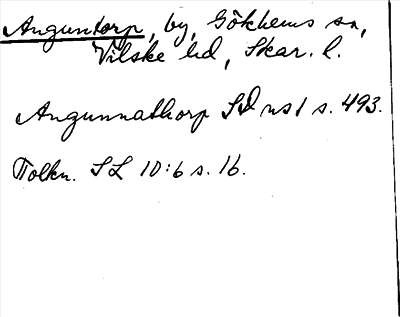 Anguntorp, by, Gökhems sn,
Vilske hd, Skar. l.
Angunnathorp SD ns 1 s. 493.
Tolkn. SL 10:6 s. 16.